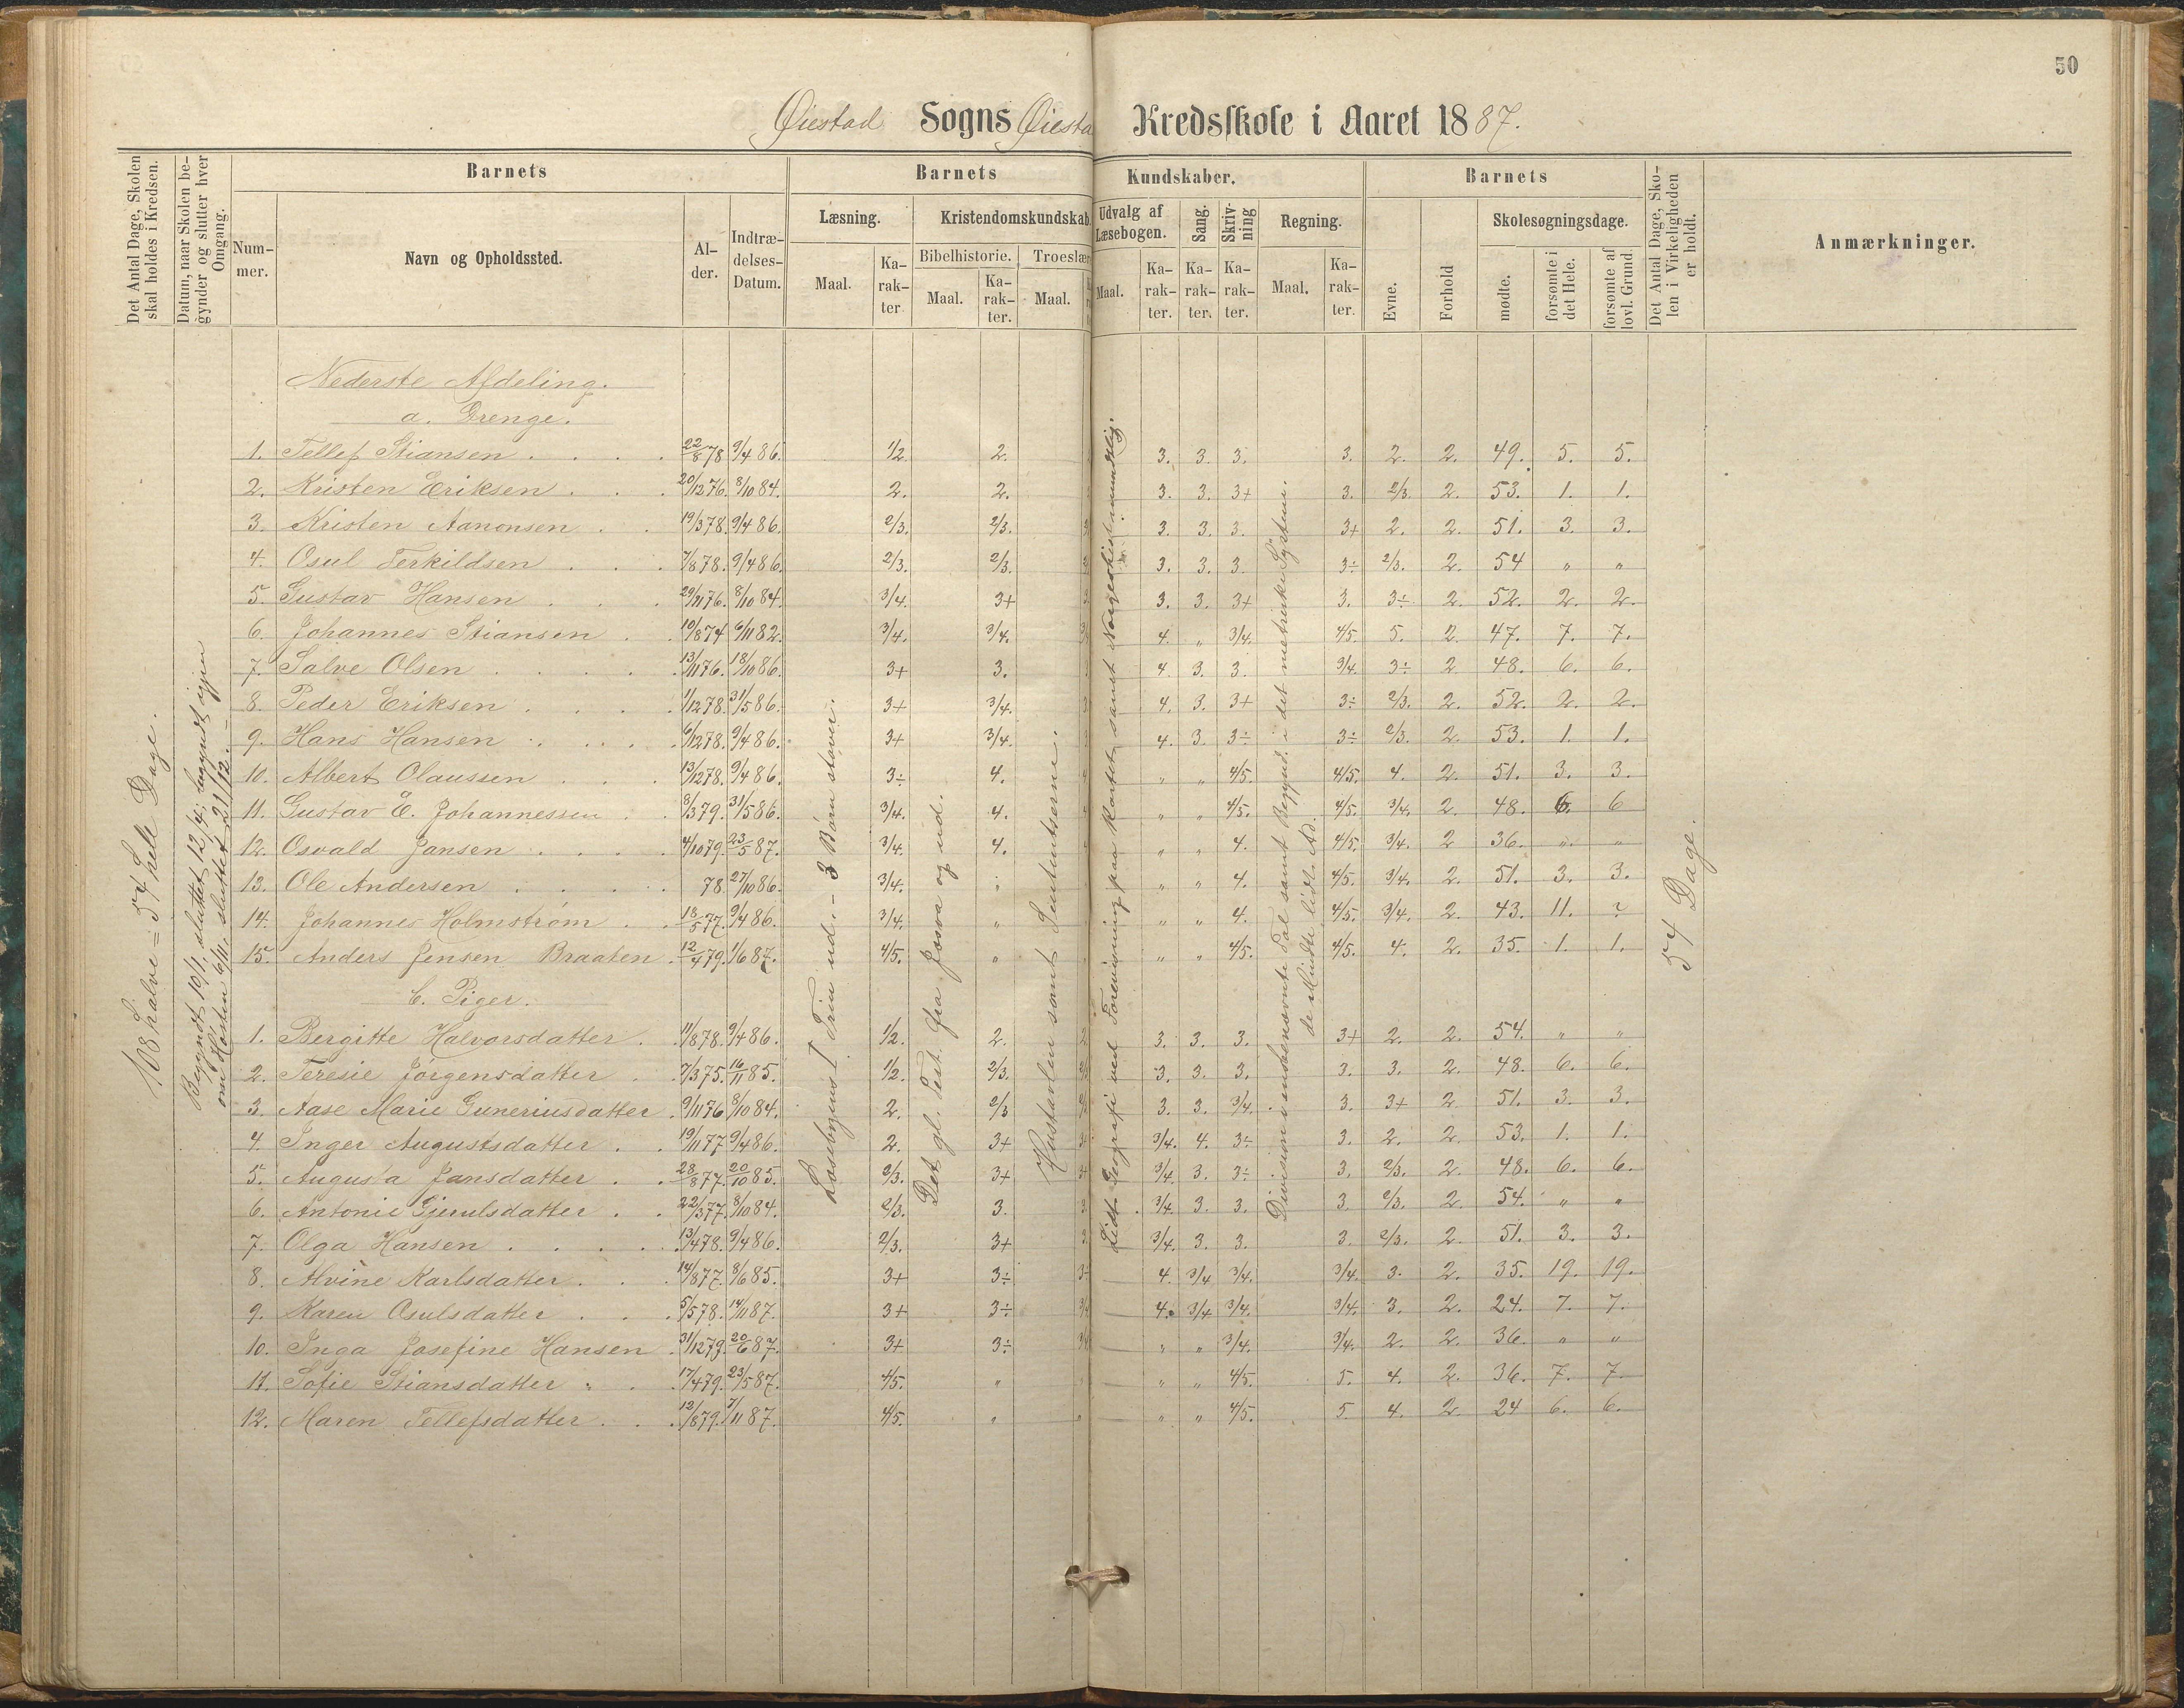 50
Øiestad Sogns Øiesta Kredsskole i Aaret 1887.
Det Antal Dage, Skolen skal holdes i Kredsen.
Datum, naar Skolen begynder og slutter hver Omgang.
Barnets
Nummer.
Navn og Opholdssted.
Alder.
Indtrædelses-Datum.
Barnets Kundskaber.
Læsning.
Maal.
Karakter
Kristendomskundskab.
Bibelhistorie.
Maal.
Karakter.
Troeslær
Maal.
Udvalg af Læsebogen.
Maal.
Karakter.
Sang.
Karakter.
Skrivning
Karakter.
Regning.
Maal.
Karakter.
Barnets
Evne.
Forhold
Skolesøgningsdage.
mødte.
forsømte i det Hele.
forsømte af lovl. Grund.
Det Antal Dage, Skolen i Virkeligheden er holdt.
Anmærkninger.
108 halve = 54 hele Dage.
Begyndt 10/1, sluttet 12/4; begyndt igjen
om Høsten 6/11, sluttet 21/12.
Læsebogens I Trin ud. – 3 Børn staver.
Det gl. Test. fra Josva og ud.
Hustavlen samt Sententserne.
Lidt Geografi ved Forevisning paa Kartet samt Norgeshist. mundtlig.
Division i ensbenævnte Tal samt Begynd. i det metriske System.
de Mindste lidt Ad.
54 Dage.
Nederste Afdeling.
a. Drenge.
1. Tellef Stiansen 22/8 78 9/4 86. 1/2. 2. 3. 3. 3. 3. 2. 2. 49. 5. 5.
2. Kristen Eriksen 20/12 76. 8/10 84. 2. 2. 3. 3. 3+ 3. 2/3. 2. 53. 1. 1.
3. Kristen Aanonsen 19/3 78. 9/4 86. 2/3. 2/3. 3. 3. 3. 3+ 2. 2. 51. 3. 3.
4. Osul Terkildsen 7/8 78. 9/4 86. 2/3. 2/3. 3. 3. 3. 3÷ 2/3. 2. 54 " "
5. Gustav Hansen 29/11 76. 8/10 84. 3/4. 3+ 3. 3. 3+ 3. 3÷ 2. 52. 2. 2.
6. Johannes Stiansen 10/8 74 6/11 82. 3/4. 3/4. 4. " 3/4. 4/5. 5. 2. 47. 7. 7.
7. Salve Olsen 13/11 76. 18/10 86. 3+ 3. 4. 3. 3. 3/4. 3÷ 2. 48. 6. 6.
8. Peder Eriksen 1/12 78. 31/5 86. 3+ 3/4. 4. 3. 3+ 3÷ 2/3. 2. 52. 2. 2.
9. Hans Hansen 6/12 78. 9/4 86. 3+ 3/4. 4. 3. 3÷ 3÷ 2/3. 2. 53. 1. 1.
10. Albert Olaussen 13/12 78. 9/4 86. 3÷ 4. " " 4/5. 4/5. 4. 2. 51. 3. 3.
11. Gustav E. Johannessen 8/3 79. 31/5 86. 3/4. 4. " " 4/5. 4/5. 3/4. 2. 48. 6. 6
12. Osvald Jansen 4/10 79. 23/5 87. 3/4. 4. " " 4. 4/5. 3/4. 2 36. " "
13. Ole Andersen 78. 27/10 86. 3/4. " " " 4. 4/5. 3/4. 2. 51. 3. 3.
14. Johannes Holmstrøm 18/5 77. 9/4 86. 3/4. " " " 4. 4/5. 3/4. 2. 43. 11. ?
15. Anders Jensen Braaten 12/4 79. 1/6 87. 4/5. " " " 4/5. 4/5. 4. 2. 35. 1. 1.
b. Piger.
1. Bergitte Halvorsdatter 11/8 78. 9/4 86. 1/2. 2. 3. 3. 3. 3+ 2. 2. 54. " "
2. Teresie Jørgensdatter 7/3 75. 16/11 85. 1/2. 2/3. 3. 3. 3. 3. 3. 2. 48. 6. 6.
3. Aase Marie Guneriusdatter 9/11 76 8/10 84. 2. 2/3 3. 3. 3/4. 3. 3+ 2 51. 3. 3.
4. Inger Augustsdatter 19/11 77 9/4 86. 2. 3+ 3/4. 4. 3÷ 3. 2. 2. 53. 1. 1.
5. Augusta Jansdatter 28/8 77. 20/10 85. 2/3. 3+ 3/4. 3. 3÷ 3. 2/3. 2. 48. 6. 6.
6. Antonie Gjerulsdatter 22/3 77. 8/10 84. 2/3. 3. 3/4. 3. 3. 3. 2/3. 2. 54. " "
7. Olga Hansen 13/4 78. 9/4 86. 2/3. 3+ 3/4. 3. 3. 3. 2/3. 2. 51. 3. 3.
8. Alvine Karlsdatter 14/8 77. 8/6 85. 3+ 3÷ 4. 3/4 3/4. 3/4. 3. 2. 35. 19. 19.
9. Karen Osulsdatter 5/5 78. 14/11 87. 3+ 3÷ 4. 3/4 3/4. 3/4. 3. 2. 24. 7. 7.
10. Inga Josefine Hansen 31/12 79. 20/6 87. 3+ 3÷ " " 3/4. 3/4. 2. 2. 36. " "
11. Sofie Stiansdatter 17/4 79. 23/5 87. 4/5. " " " 4/5. 5. 4. 2. 36. 7. 7.
12. Maren Tellefsdatter 12/8 79. 7/11 87. 4/5. " " " " 4/5. 5. 4. 2. 24 6. 6.